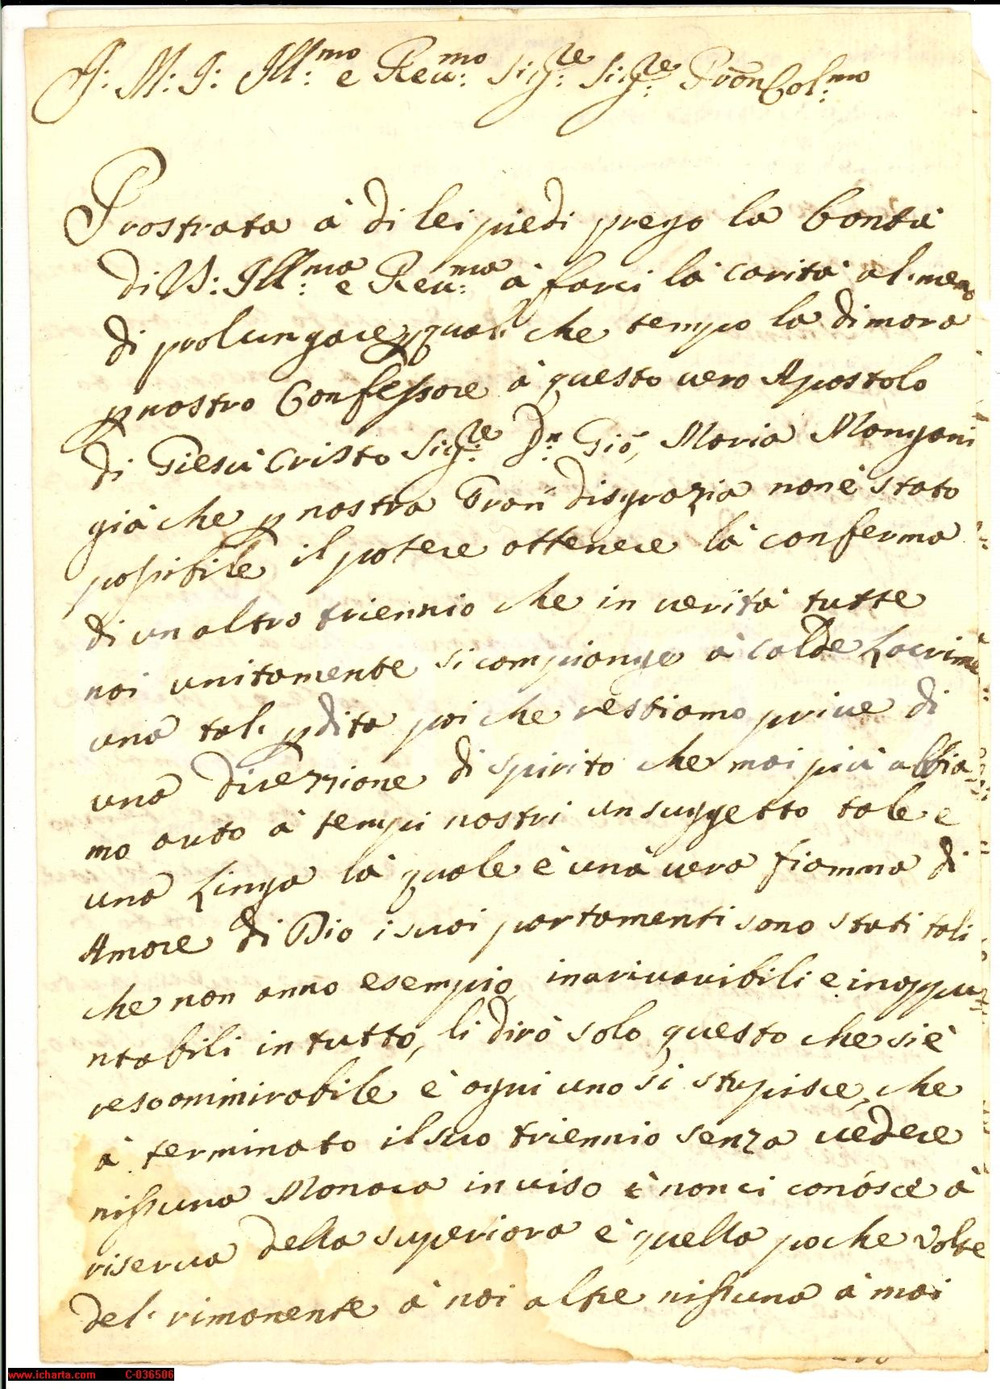 J: M: J: Ill:mo e Reu:mo Sig:re Sig:re Pron Col:mo
Prostrata à di lei piedi prego la bontà
di V: Ill:ma e Reu:ma à farci là carità al meno
di prolungare p qual che tempo la dimora
p nostro Confessore à questo uero Apostolo
di Giesù Cristo Sig:re Dn Gio, Maria Mongani
già che p nostra Gran disgrazia non è stato
possibile il potere ottenere là conferma
di un altro triennio che in uerità tutte
noi unitamente si compiange à calde Lacrime
una tal pdita poi che restiamo priue di
una direzzione di spirito che mai più abbia
mo auto à tempi nostri un suggetto tale e
una Linga là quale è unà uera fiamma di
Amore di Dio i suoi portamenti sono stati tali
che non anno esempio inariuauibili e inappu
ntabili in tutto, li dirò solo questo che si è
reso ammirabile è ogni uno si stupisce, che
à terminato il suo triennio senza uedere
nissuna Monaca in uiso è non ci conósce à
riserua della superiora è quella poche volte
del rimanente à noi altre nissuna à mai
www.icharta.com C-036506